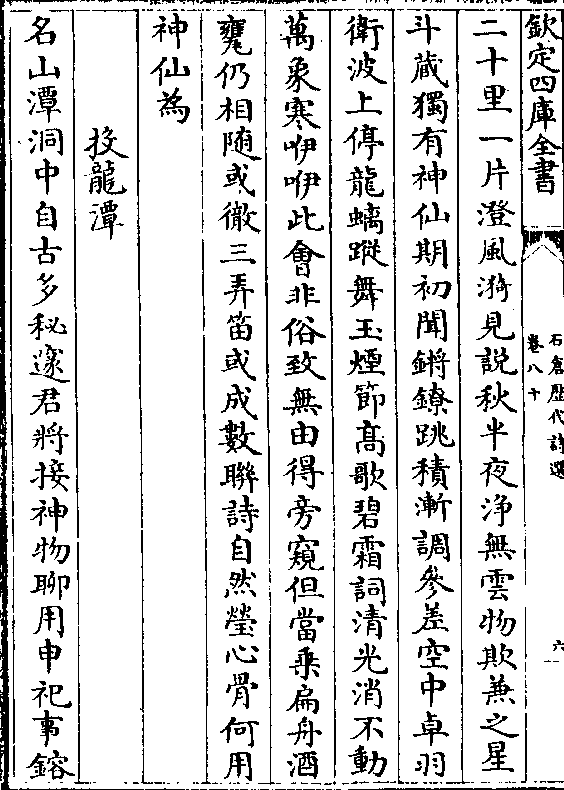 欽定四庫全書
石倉歴代詩選
卷八十
六
二十里一片澄風漪見説秋半夜浄無雲物欺兼之星
斗藏獨有神仙期初聞鏘鐐跳積漸調參差空中卓羽
衛波上停龍螭蹤舞玉煙節髙歌碧霜詞清光消不動
萬象寒咿咿此會非俗致無由得旁窺但當乗扁舟酒
甕仍相随或徹三弄笛或成數聯詩自然瑩心骨何用
神仙為
投龍潭
名山潭洞中自古多秘邃君將接神物聊用申祀事鎔